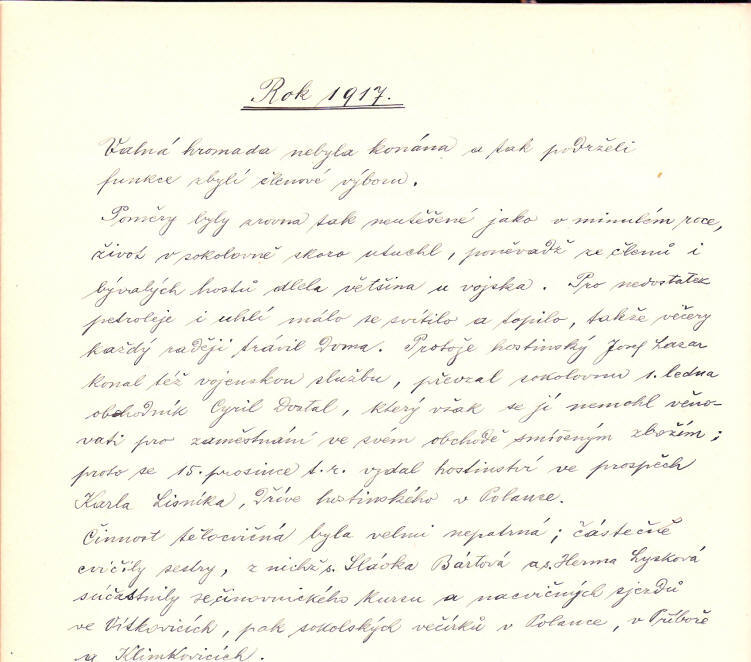 Rok 1917.
Valná hromada nebyla konána a tak podrželi
funkce zbylí členové výboru.
Poměry byly zrovna tak neutěšené jako v minulém roce,
život v sokolovně skoro utuchl, poněvadž ze členů i
bývalých hostů dlela většina u vojska. Pro nedostatek
petroleje i uhlí málo se svítilo a topilo, takže večery
každý raději trávil doma. Protože hostinský Josef Lazar
konal též vojenskou službu, převzal sokolovnu 1. ledna
obchodník Cyril Dostal, který však se jí nemohl věno-
vati pro zaměstnání ve svém obchodě smíšeným zbožím;
proto se 15. prosince t. r. vzdal hostinství ve prospěch
Karla Lisníka, dříve hostinského v Polance.
Činnost tělocvičná byla velmi nepatrná; částečně
cvičily sestry, z nichž s. Slávka Bártová a s. Herma Lysková
súčastnily se činovnického kursu a nacvičných sjezdů
ve Vítkovicích, pak sokolských večírků v Polance, v Příboře
a Klimkovicích.